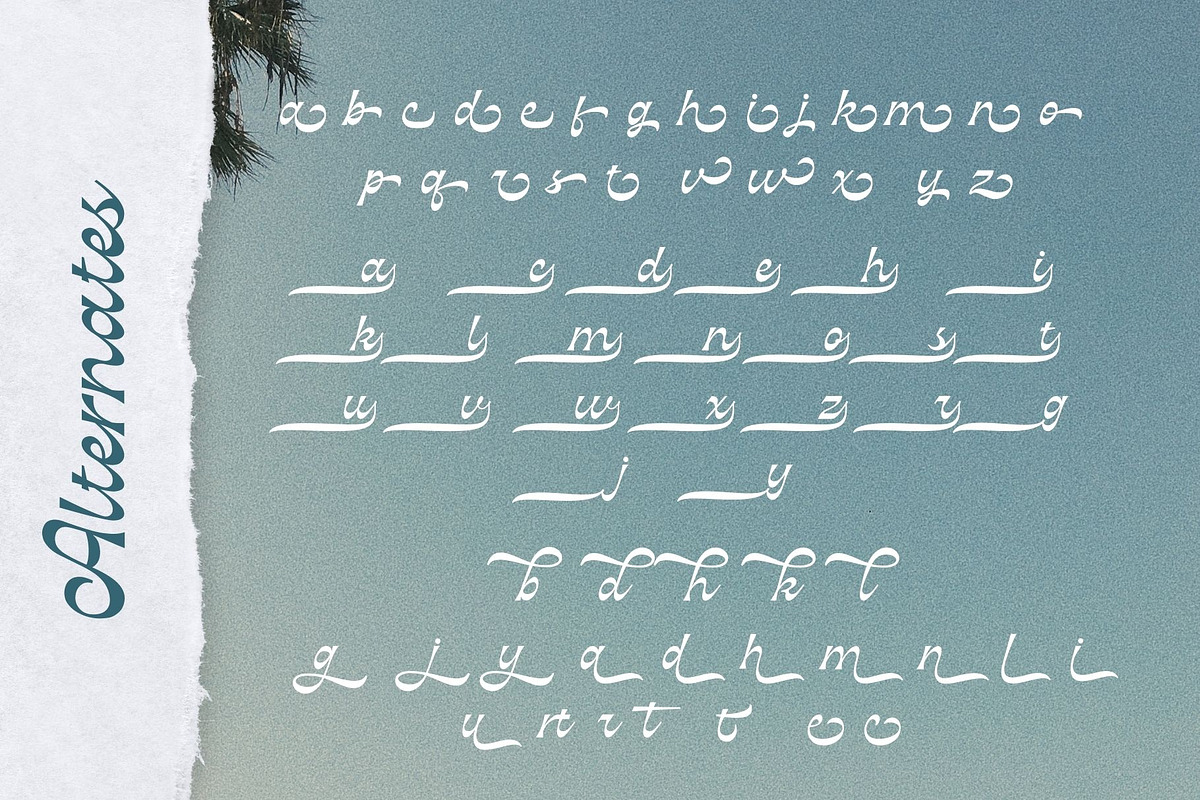 Alternates
a b c d e f g h i j k m n o
p q r s t v w x y z
a c d e h i
k l m n o s t
u v w x z r g
j y
b d h k l
g j y a d h m n l i
u rt r t t e c